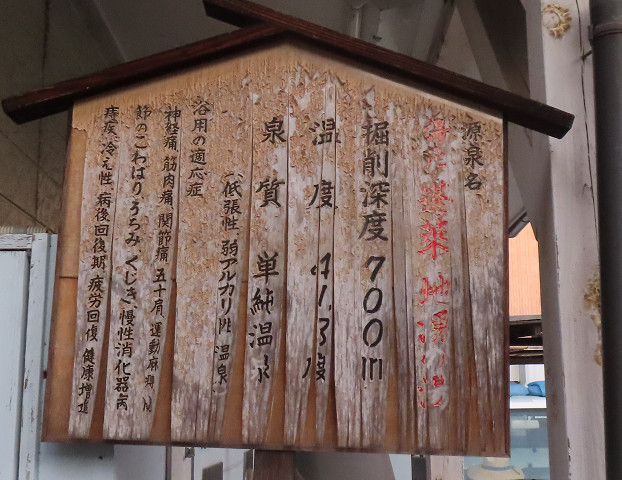 源泉名
薬 地
掘削深度 700m
温度 41.3度
泉質 単純温泉
(低張性、弱アルカリ性 温泉)
浴用の適応症
神経痛、筋肉痛、関節痛、五十肩、運動麻痺、関
節のこわばり、うちみ、くじき、慢性消化器病
痔疾、冷え性、病後回復期、疲労回復、健康増進